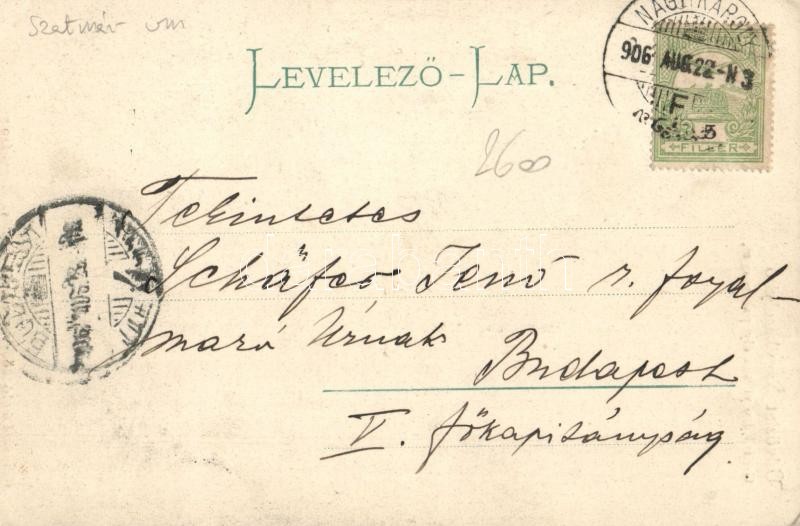 Szatmár vm
NAGYKÁROLY
906 AUG.22-N3
F
LEVELEZŐ-LAP.
5
FILLÉR
2600
Tekintetes
Schäfer Jenő r. fogal-
mazó Úrnak
Budapest
V. főkapitányság